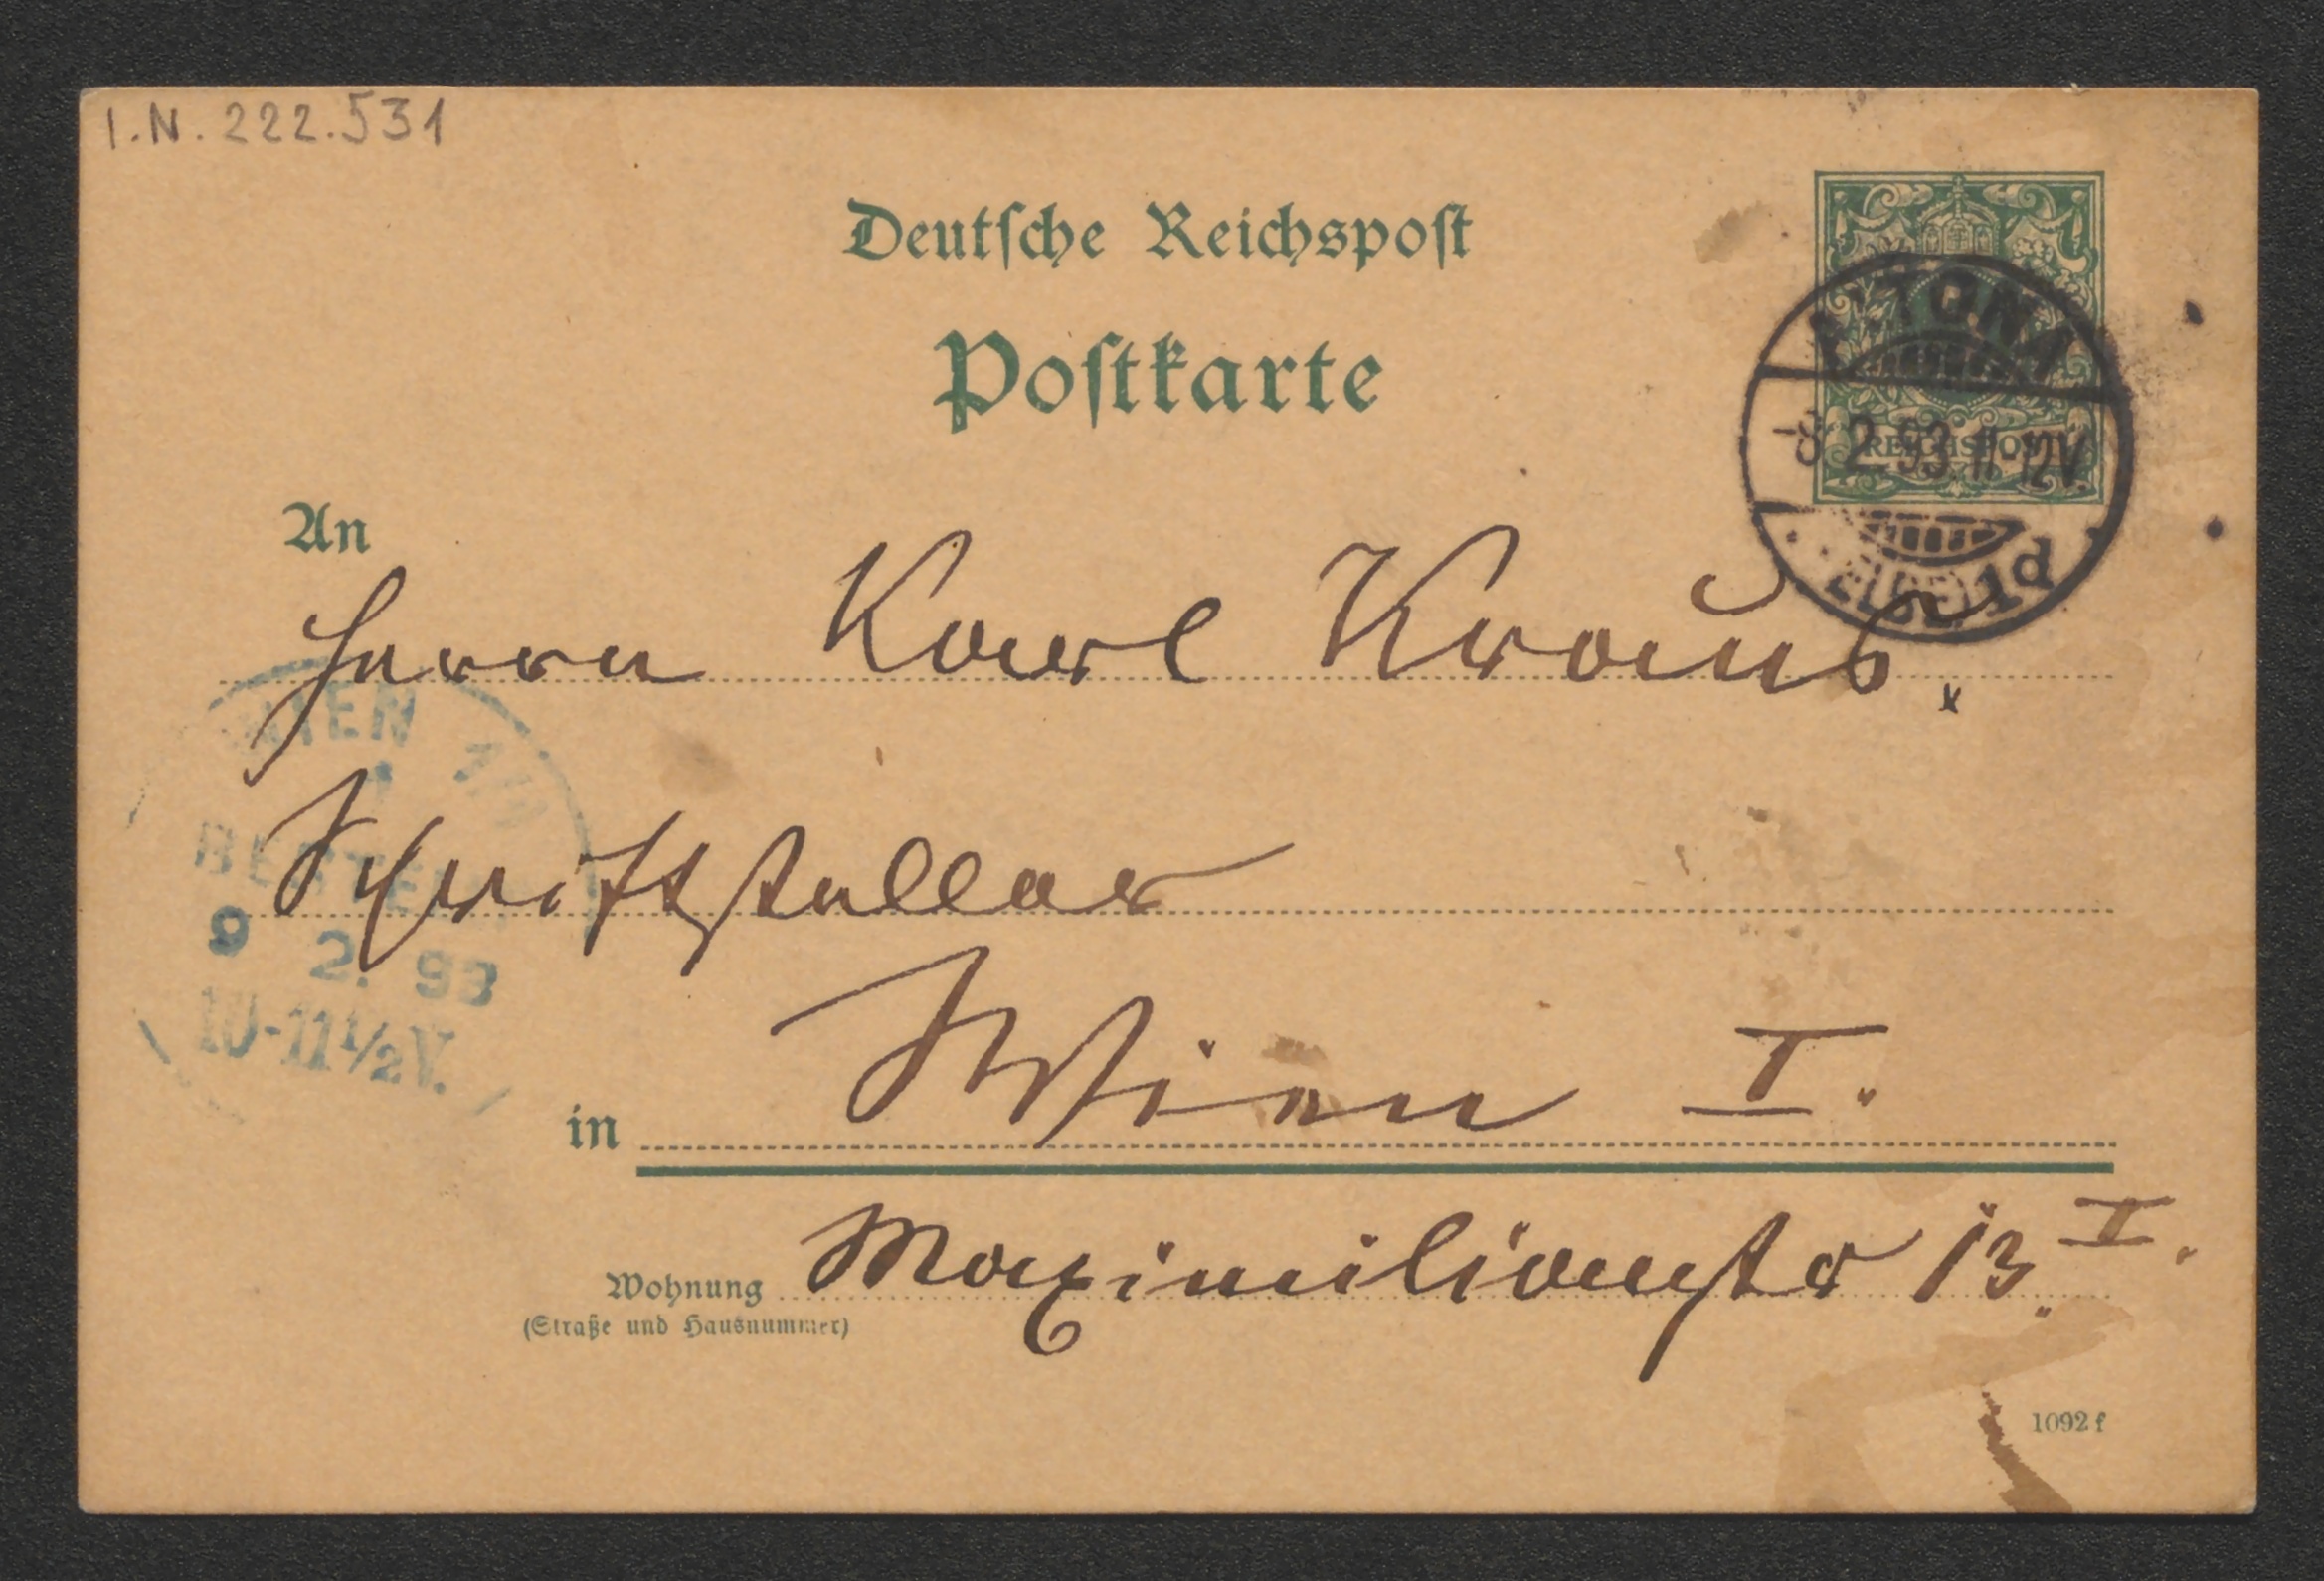 I.N. 222.531
Deutsche Reichspost
Postkarte
ALTONA
-8.2.93.11-12V.
(ELBE) 1d
REICHSPOST
An
Herrn Karl Kraus.
Schriftsteller
WIEN
BESTE
9 2. 93
10-11½V.
in Wien I.
Wohnung Maximilianstr 13. I.
(Straße und Hausnummer)
1092 f